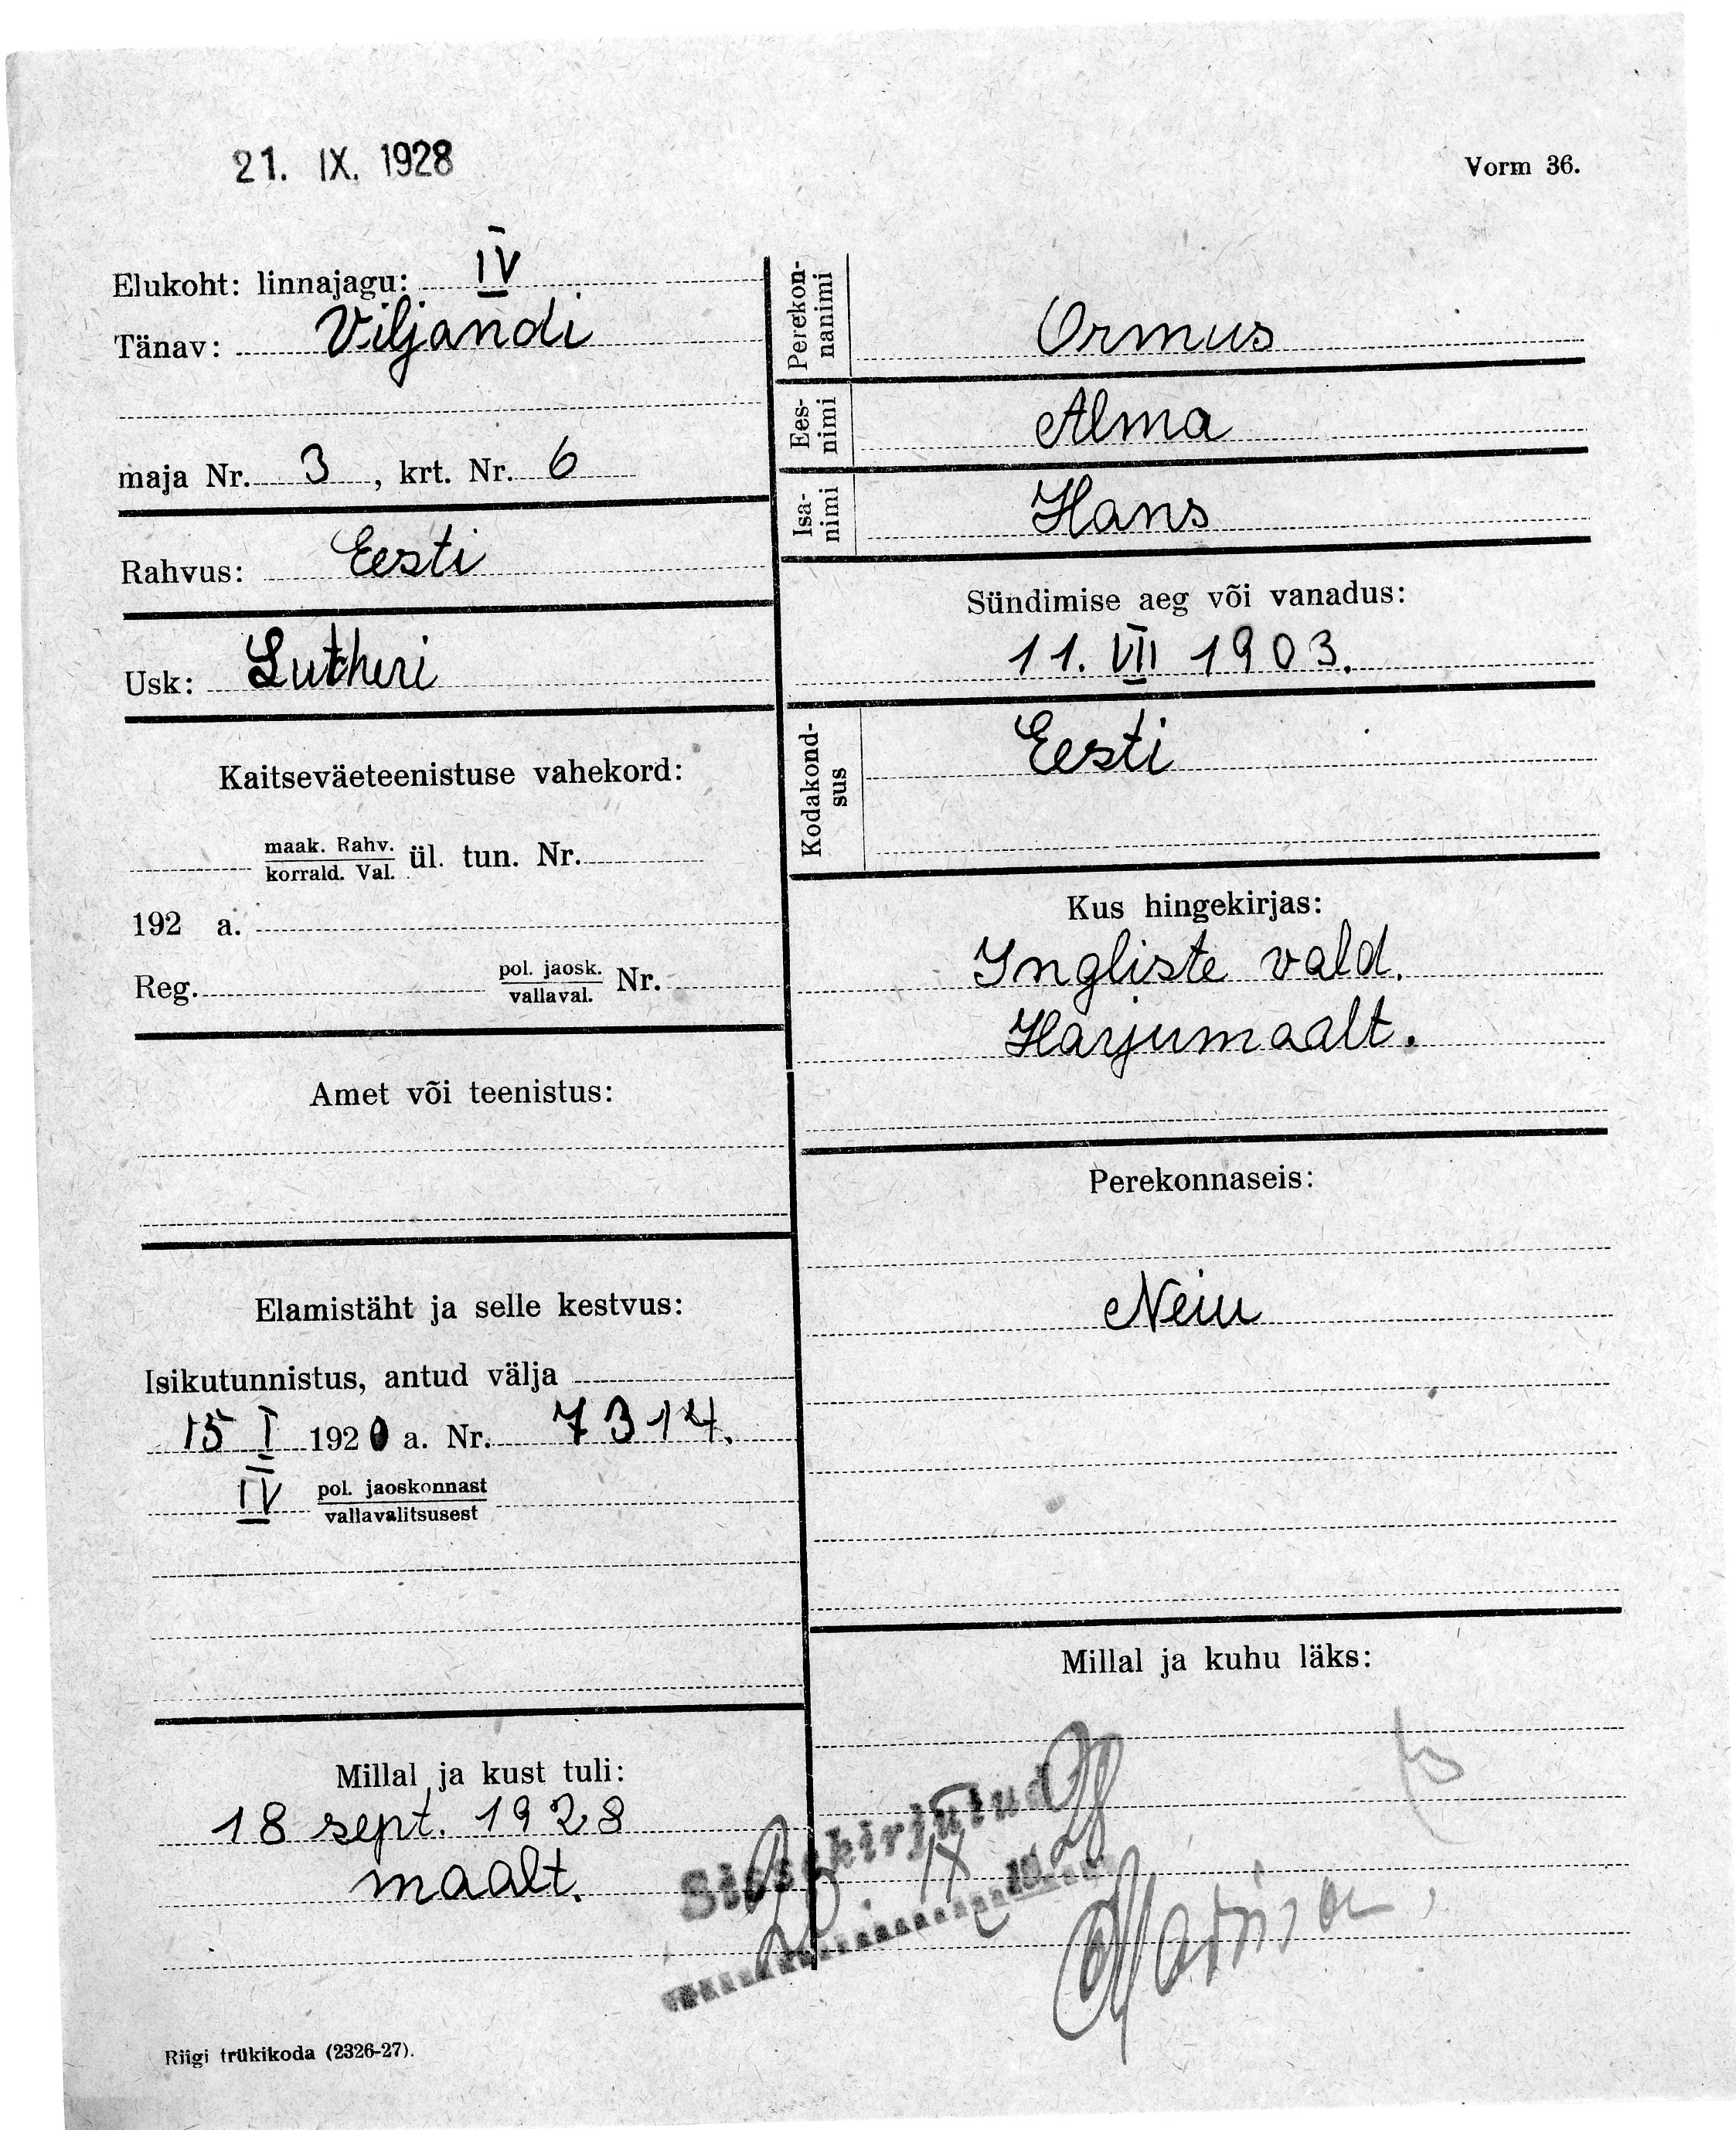 21. IX. 1928
Vorm 36.
Elukoht: linnajagu: IV
Tänav: Viljandi
maja Nr. 3, krt. Nr. 6
Rahvus: Eesti
Usk: Lutheri
Kaitseväeteenistuse vahekord:
maak. Rahv.
korrald. Val. ül. tun. Nr.
192 a.
Reg. pol. jaosk. Nr.
vallaval.
Amet või teenistus:
Elamistäht ja selle kestvus:
Isikutunnistus, antud välja
15 I 1920 a. Nr. 7314.
IV pol. jaoskonnast
vallavalitsusest
Millal ja kust tuli:
18 sept. 1928
maalt.
Perekon-
nanimi
Ormus
Ees-
nimi
Alma
Isa-
nimi
Hans
Sündimise aeg või vanadus:
11. VII 1903.
Kodakond-
sus
Eesti
Kus hingekirjas:
Ingliste vald.
Harjumaalt.
Perekonnaseis:
Neiu
Millal ja kuhu läks:
Sissekirjutud
IX 1928
Riigi trükikoda (2326-27).